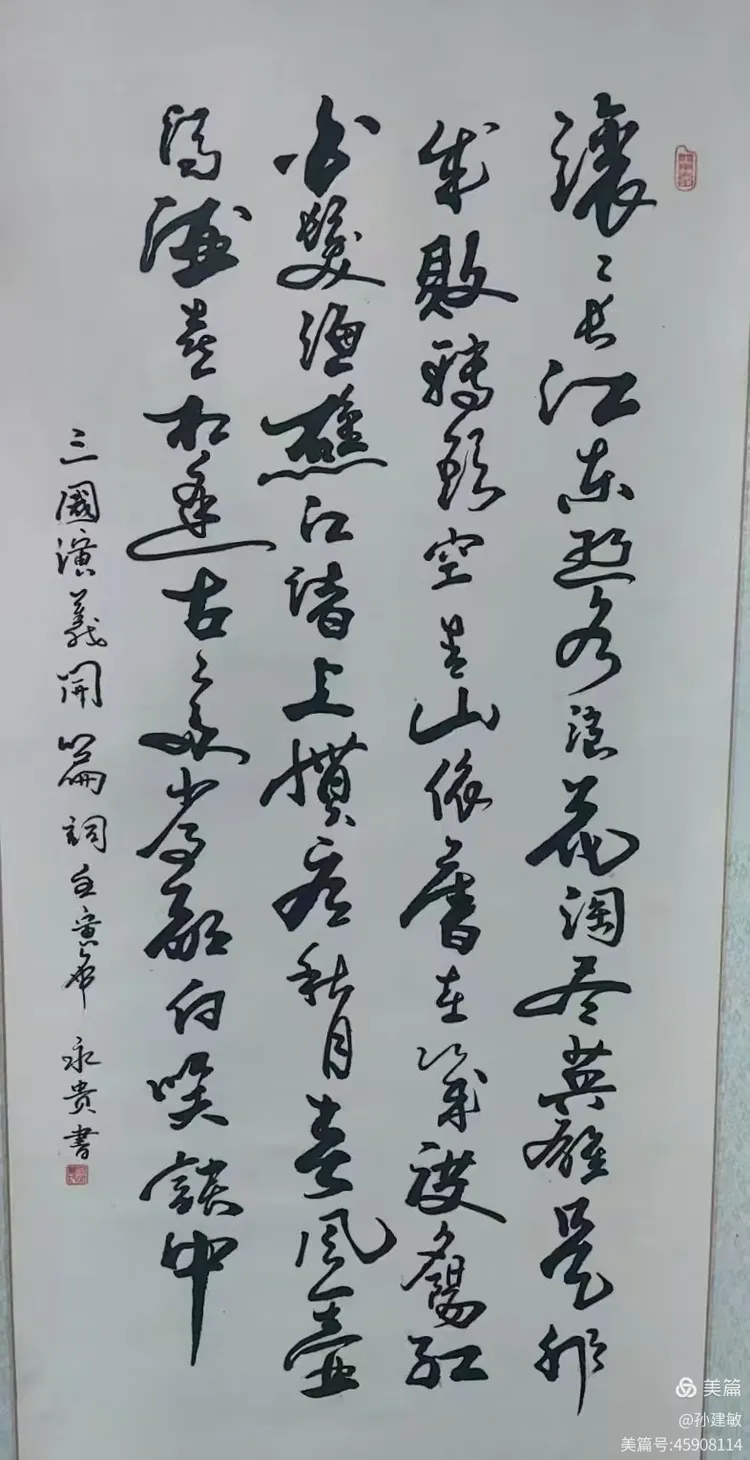 滚〻长江东逝水浪花淘尽英雄是非
成败转头空青山依舊在几度夕陽红
白髮渔樵江渚上惯看秋月春风一壶
浊酒喜相逢古今多少事都付笑談中
三國演義開篇詞 壬寅年 永贵書
美篇
@孙建敏
美篇号:45908114